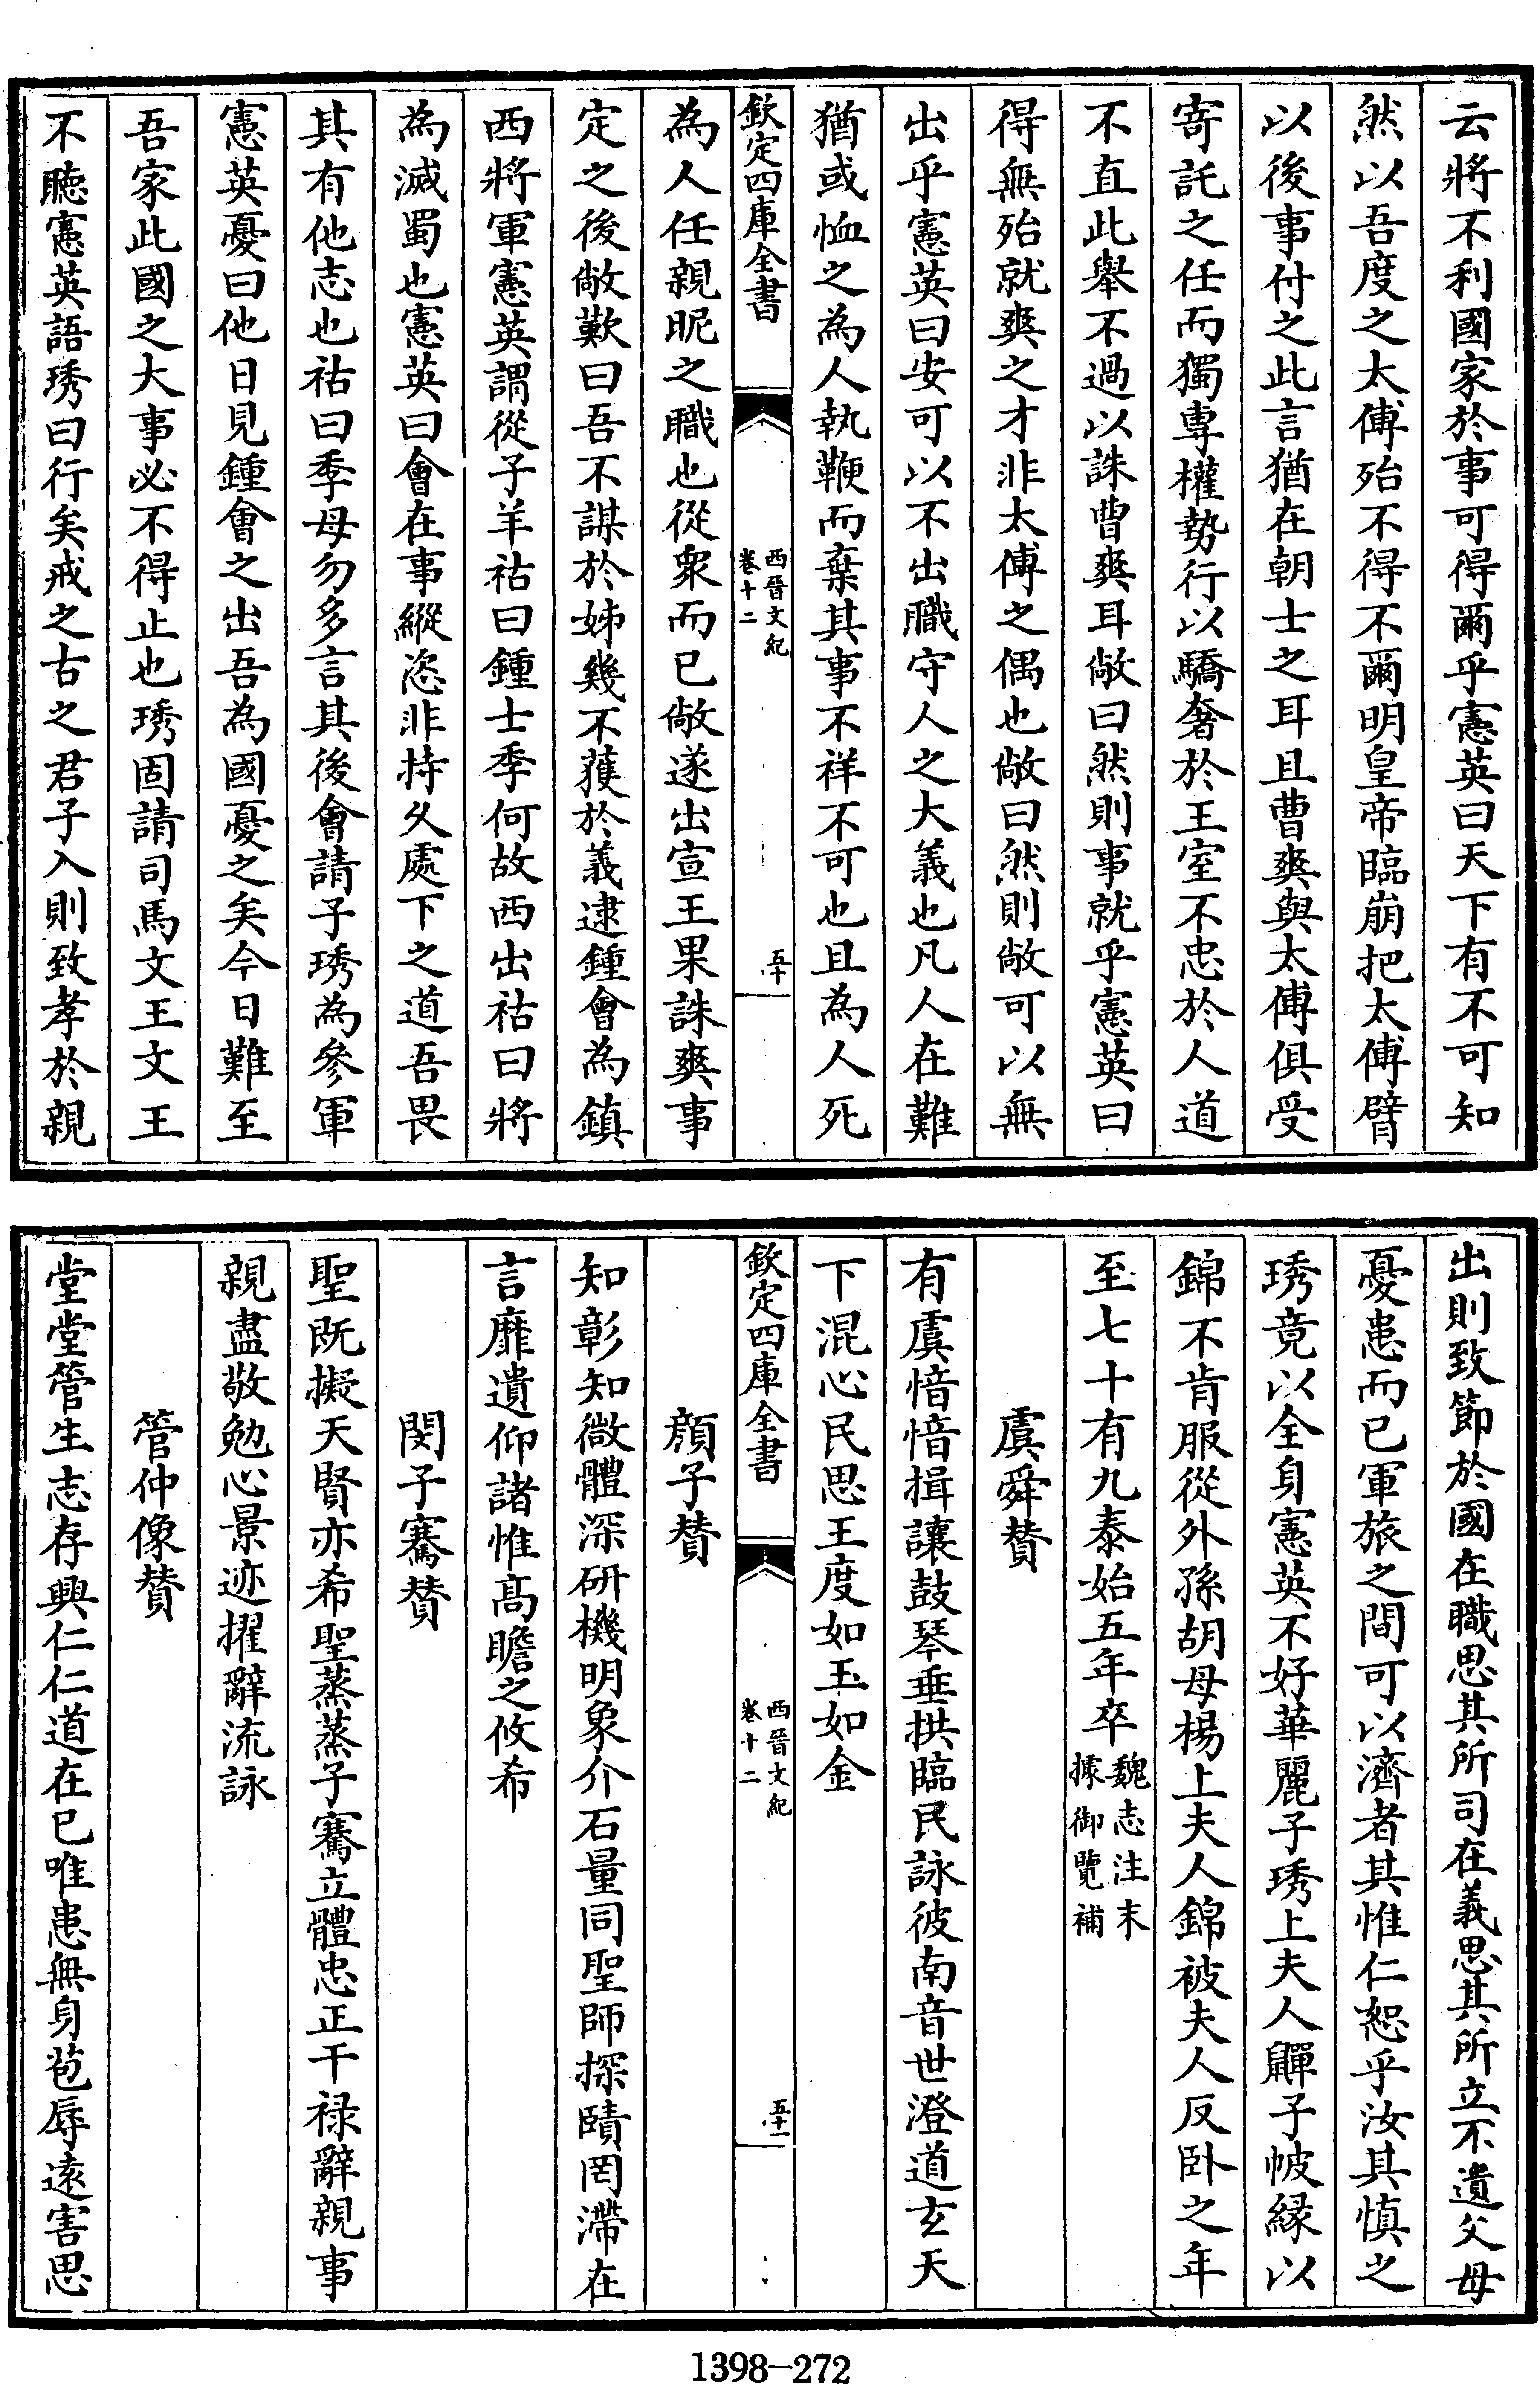 云將不利國家於事可得爾乎憲英曰天下有不可知
然以吾度之太傅殆不得不爾明皇帝臨崩把太傅臂
以後事付之此言猶在朝士之耳且曹爽與太傅俱受
寄託之任而獨專權勢行以驕奢於王室不忠於人道
不直此舉不過以誅曹爽耳敞曰然則事就乎憲英曰
得無殆就爽之才非太傅之偶也敞曰然則敞可以無
出乎憲英曰安可以不出職守人之大義也凡人在難
猶或恤之為人執鞭而棄其事不祥不可也且為人死
欽定四庫全書
西晉文紀
卷十二
五十
為人任親昵之職也從衆而已敞遂出宣王果誅爽事
定之後敞歎曰吾不謀於姊幾不獲於義逮鍾會為鎮
西將軍憲英謂從子羊祜曰鍾士季何故西出祜曰將
為滅蜀也憲英曰會在事縱恣非持久處下之道吾畏
其有他志也祜曰季母勿多言其後會請子琇為參軍
憲英憂曰他日見鍾會之出吾為國憂之矣今日難至
吾家此國之大事必不得止也琇固請司馬文王文王
不聽憲英語琇曰行矣戒之古之君子入則致孝於親
出則致節於國在職思其所司在義思其所立不遺父母
憂患而已軍旅之間可以濟者其惟仁恕乎汝其慎之
琇竟以全身憲英不好華麗子琇上夫人鼲子帔緣以
錦不肯服從外孫胡母楊上夫人錦被夫人反臥之年
至七十有九泰始五年卒魏志注末
據御覽補
虞舜贊
有虞愔愔揖讓鼓琴垂拱臨民詠彼南音世澄道玄天
下混心民思王度如玉如金
欽定四庫全書
西晉文紀
卷十二
五十一
顔子贊
知彰知微體深研機明象介石量同聖師探賾罔滯在
言靡遺仰諸惟高瞻之攸希
閔子騫贊
聖既擬天賢亦希聖蒸蒸子騫立體忠正干祿辭親事
親盡敬勉心景迹擢辭流詠
管仲像贊
堂堂管生志存興仁仁道在己唯患無身苞辱遠害思
1398-272